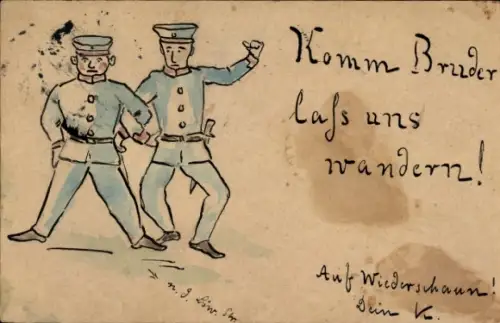 Komm Bruder
laſs uns
wandern!
Auf Wiederschaun!
Dein K.
n. d.